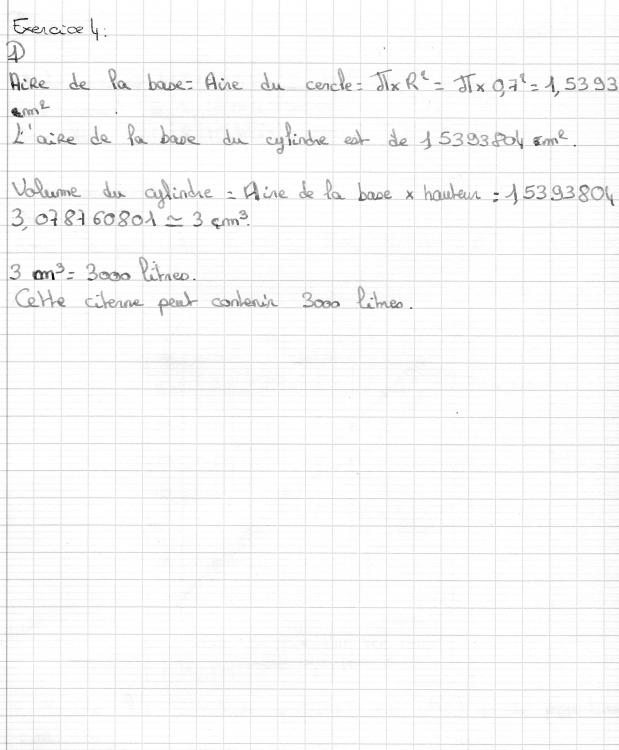 Exercice 4:
1)
Aire de la base = Aire du cercle = π x R² = π x 0,7² = 1,5393
m²
L'aire de la base du cylindre est de 1 5393804 m².
Volume du cylindre = Aire de la base x hauteur = 1 5393804
3,078760801 ≃ 3 m³.
3 m³ = 3000 litres.
Cette citerne peut contenir 3000 litres.